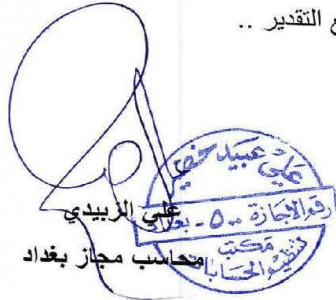 ع التقدير ..
علي عبيد خضير
رقم الاجازة ٥٠٠ - بغداد
مكتب
تنظيم الحسابات
علي الزبيدي
محاسب مجاز بغداد